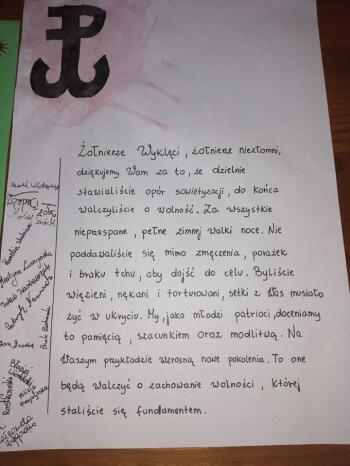 Żołnierze Wyklęci, żołnierze niezłomni,
dziękujemy Wam za to, że dzielnie
stawialiście opór sowietyzacji, do końca
walczyliście o wolność. Za wszystkie
nieprzespane, pełne zimnej walki noce. Nie
poddawaliście się mimo zmęczenia, porażek
i braku tchu, aby dojść do celu. Byliście
więzieni, nękani i torturowani, setki z Was musiało
żyć w ukryciu. My, jako młodzi patrioci, doceniamy
to pamięcią, szacunkiem oraz modlitwą. Na
Waszym przykładzie wzrosną nowe pokolenia. To one
będą walczyć o zachowanie wolności, której
staliście się fundamentem.